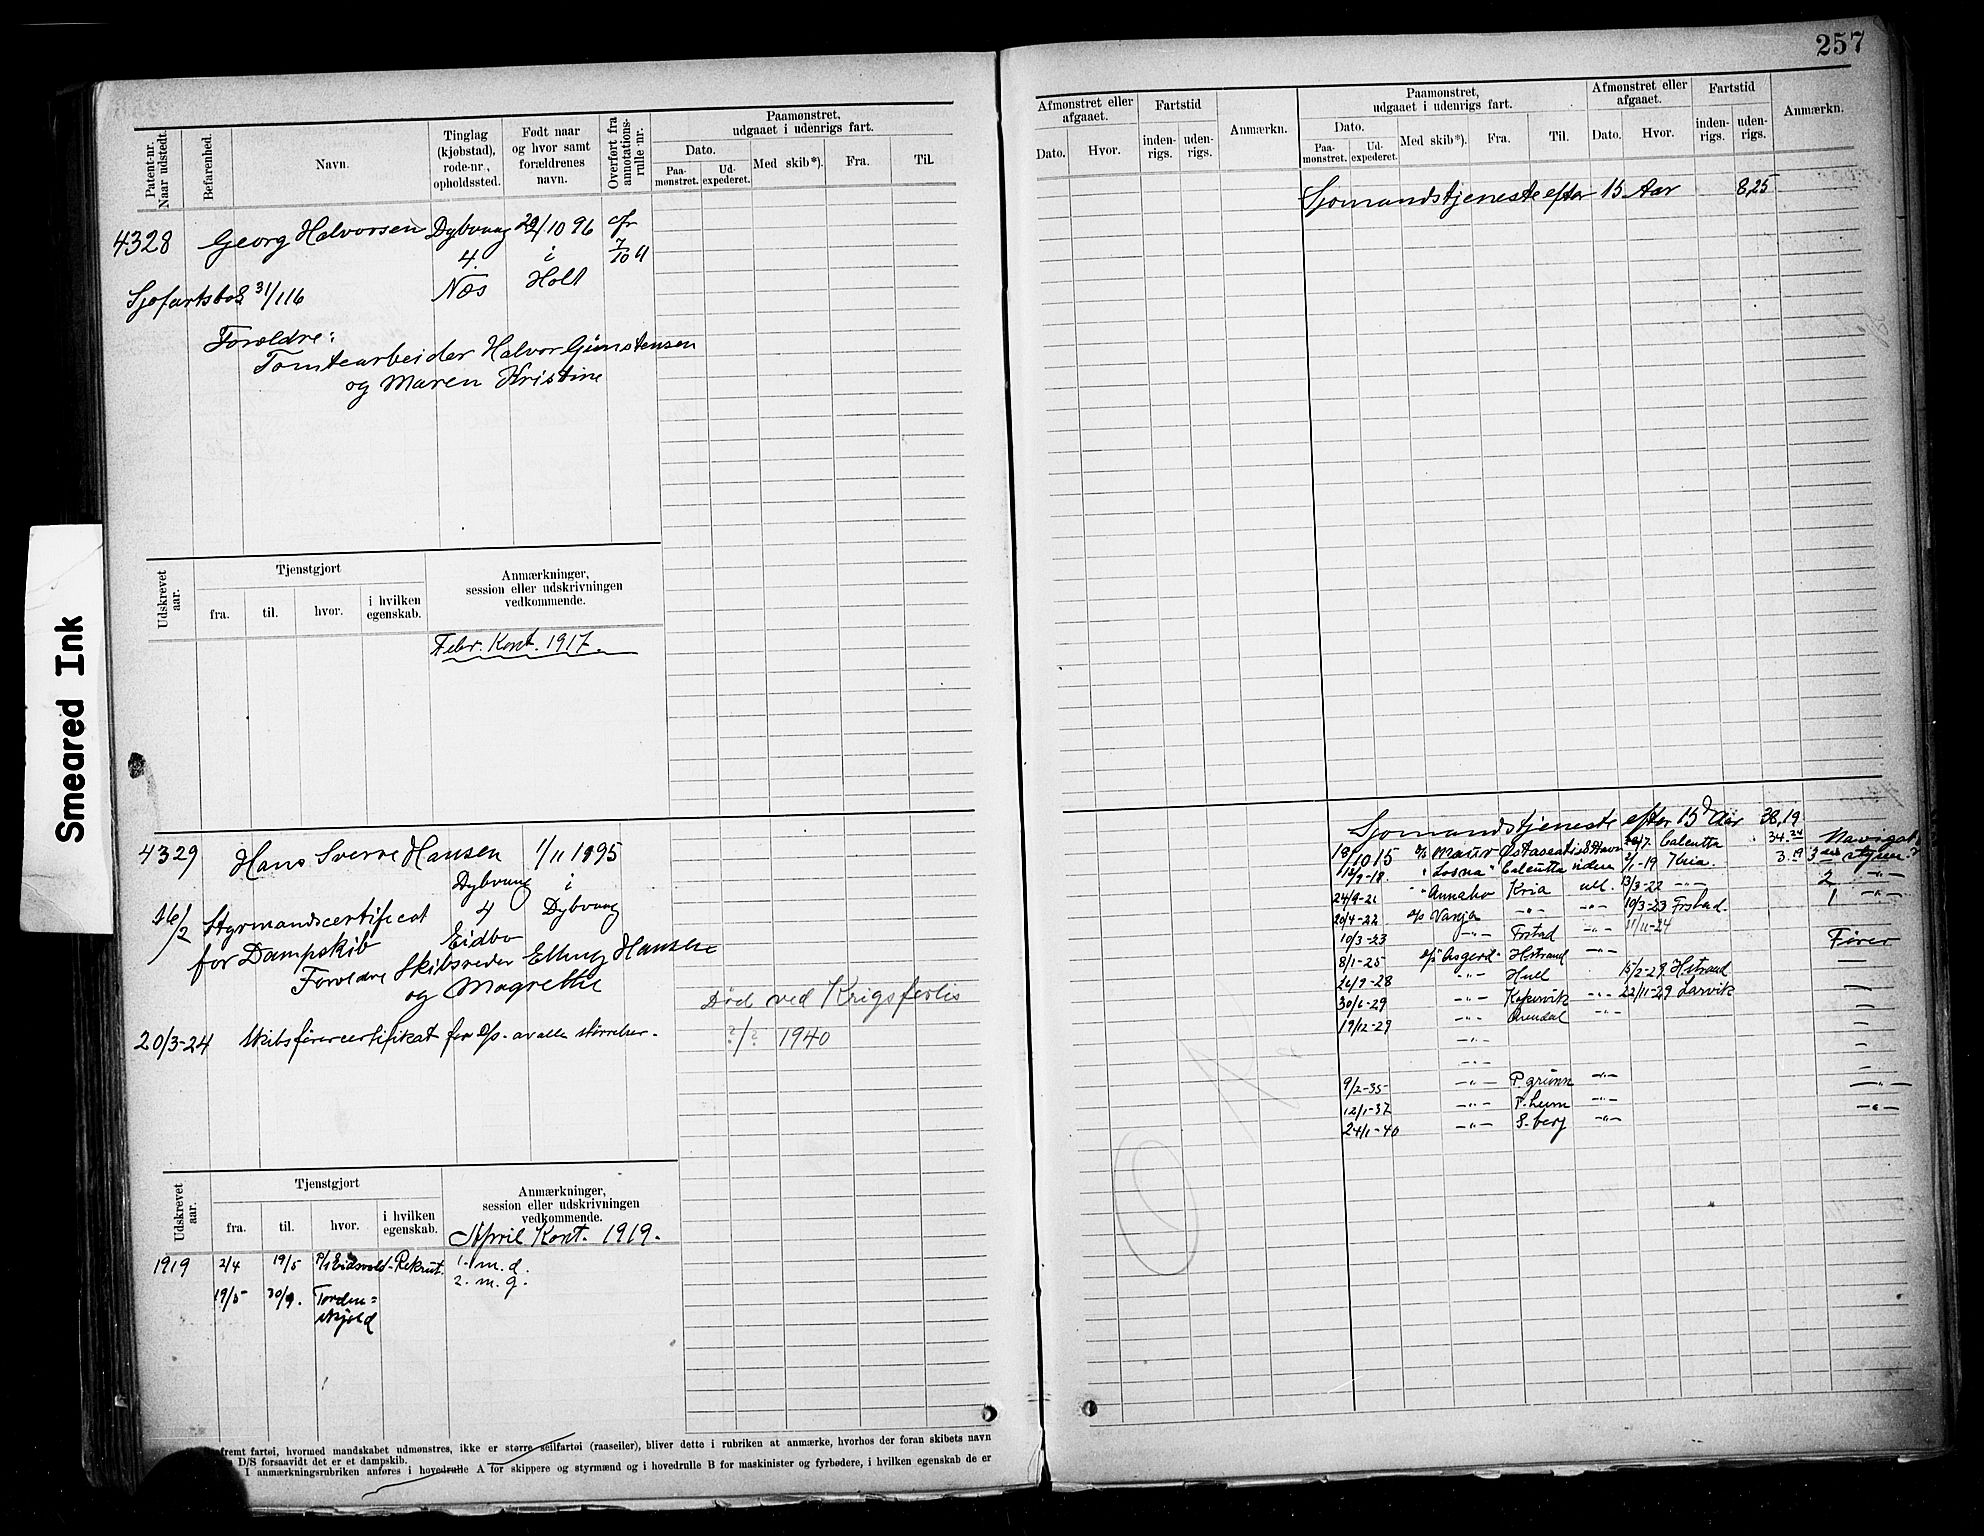 257
Patent-nr. Naar udstedt.
Befarenhed.
Navn.
Tinglag (kjøbstad), rode-nr., opholdssted.
Født naar og hvor samt forældrenes navn.
Overført fra annotations-rulle nr.
Paamønstret, udgaaet i udenrigs fart.
Dato.
Paa-mønstret.
Ud-expederet.
Med skib*).
Fra.
Til.
4328 Georg Halvorsen Dybvaag 29/10 96
4. i
Sjøfartsbok 31/1 16 Næs Holt
Forældre:
Tomtearbeider Halvor Gunstensen
og Maren Kristine
Udskrevet aar.
Tjenstgjort
fra. til. hvor. i hvilken egenskab.
Anmærkninger, session eller udskrivningen vedkommende.
Febr. Kont. 1917.
4329 Hans Sverre Hansen 1/11 1895
Dybvaag i
16/2 Styrmandscertificat 4 Dybvaag
for Dampskib Eidbo
Forældre Skibsreder Elling Hansen
og Magrethe
Død ved Krigsforlis
?/? 1940
20/3-24 Skibsførercertifikat for d/s. av alle størrelser.
Udskrevet aar.
Tjenstgjort
fra. til. hvor. i hvilken egenskab.
Anmærkninger, session eller udskrivningen vedkommende.
April Kont. 1919.
1919 2/4 19/5 P/S Eidsvold Rekrut. 1. m. d.
2. m. g.
19/5 30/9. Torden=
skjold
fremt fartøi, hvormed mandskabet udmønstres, ikke er større seilfartøi (raaseiler), bliver dette i rubriken at anmærke, hvorhos der foran skibets navn
D/S forsaavidt det er et dampskib.
I anmærkningsrubriken anføres i hovedrulle A for skippere og styrmænd og i hovedrulle B for maskinister og fyrbødere, i hvilken egenskab de er
Afmønstret eller afgaaet.
Dato. Hvor.
Fartstid
inden-rigs. uden-rigs.
Anmærkn.
Paamønstret, udgaaet i udenrigs fart.
Dato.
Paa-mønstret. Ud-expederet.
Med skib*). Fra. Til.
Afmønstret eller afgaaet.
Dato. Hvor.
Fartstid
inden-rigs. uden-rigs.
Anmærkn.
Sjømandstjeneste efter 15 Aar 8,25
Sjømandstjeneste efter 15 Aar 38,19
18/10 15 Calcutta 34.24
"Losna" Calcutta uden 2/1-19 Kria. 3.19 3die styrm.
24/9-21 "Annabo Kria ubl. 13/3-22 -"- 2 -"-
20/4-22 d/s Vanja -"- -"- 10/3-23 Frstad. 1 -"-
10/3-23 -"- Frstad -"- 11/11-24
8/1-25 d/s "Asgerd" Hstrand -"- Fører
26/9-28 -"- Hull 15/2-29 Hstrand
30/6-29 -"- Kopervik -"- 22/11-29 Larvik
19/12-29 -"- Arendal -"-
-"-
-"-
9/2-35 -"- P.grunn -"-
12/1-37 -"- -"- -"-
24/1-40 -"- S.berg -"- -"-
Smeared Ink